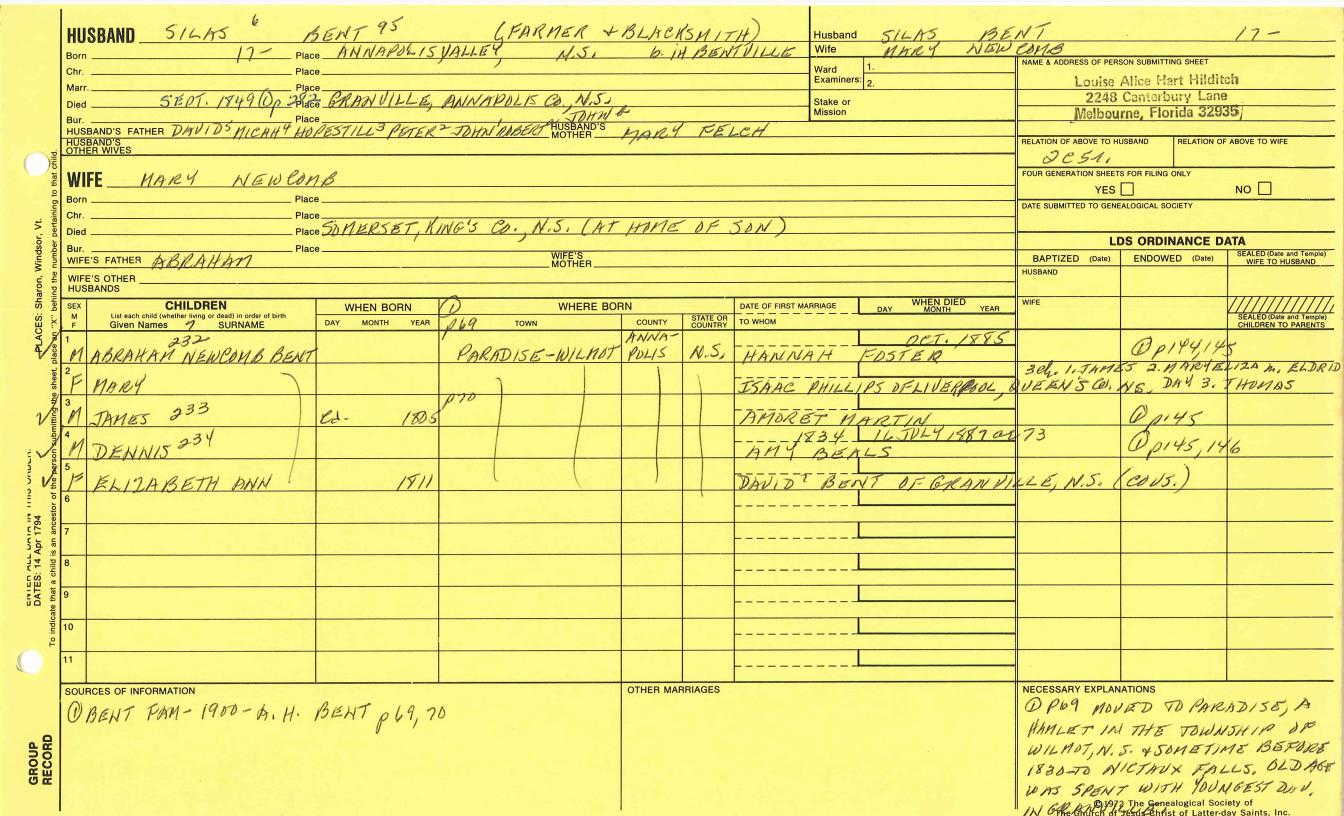 HUSBAND SILAS 6 BENT 95 (FARMER + BLACKSMITH)
Born 17- Place ANNAPOLIS VALLEY, N.S. 6. IN BENTVILLE
Chr. Place
Marr. Place
Died SEPT. 1849 ① p 282 Place GRANVILLE, ANNAPOLIS CO., N.S.
Bur. Place
HUSBAND'S FATHER DAVID5 MICAH4 HOPESTILL3 PETER2 JOHN1 ROBERT JOHN & HUSBAND'S MOTHER MARY FELCH
HUSBAND'S OTHER WIVES
Husband SILAS BENT 17-
Wife MARY NEWCOMB
Ward Examiners: 1.
2.
Stake or Mission
NAME & ADDRESS OF PERSON SUBMITTING SHEET
Louise Alice Hart Hilditch
2248 Canterbury Lane
Melbourne, Florida 32935
RELATION OF ABOVE TO HUSBAND RELATION OF ABOVE TO WIFE
2C5r.
FOUR GENERATION SHEETS FOR FILING ONLY
YES NO
DATE SUBMITTED TO GENEALOGICAL SOCIETY
WIFE MARY NEWCOMB
Born Place
Chr. Place
Died Place SOMERSET, KING'S CO., N.S. (AT HOME OF SON)
Bur. Place
WIFE'S FATHER ABRAHAM WIFE'S MOTHER
WIFE'S OTHER HUSBANDS
LDS ORDINANCE DATA
BAPTIZED (Date) ENDOWED (Date) SEALED (Date and Temple) WIFE TO HUSBAND
HUSBAND
WIFE
SEALED (Date and Temple) CHILDREN TO PARENTS
SEX M F CHILDREN WHEN BORN ① WHERE BORN DATE OF FIRST MARRIAGE WHEN DIED
List each child (whether living or dead) in order of birth
Given Names 7 SURNAME DAY MONTH YEAR p69 TOWN COUNTY STATE OR COUNTRY TO WHOM DAY MONTH YEAR
1 232 ANNA- OCT. 1885
M ABRAHAM NEWCOMB BENT PARADISE-WILMOT POLIS N.S. HANNAH FOSTER ① p144,145
2 3ch. 1. JAMES 2. MARY ELIZA m. ELDRID
F MARY ISAAC PHILLIPS OF LIVERPOOL, QUEEN'S CO. NS, DAY 3. THOMAS
3 p70
M JAMES 233 Cd. 1805 AMORET MARTIN ① p145
4 1834 16 JULY 1887 ae 73
M DENNIS 234 AMY BEALS ① p145, 146
5
F ELIZABETH ANN 1811 DAVID7 BENT OF GRANVILLE, N.S. (COUS.)
6
7
8
9
10
11
SOURCES OF INFORMATION
① BENT FAM- 1900- A. H. BENT p69, 70
OTHER MARRIAGES
NECESSARY EXPLANATIONS
① P69 MOVED TO PARADISE, A
HAMLET IN THE TOWNSHIP OF
WILMOT, N.S. & SOMETIME BEFORE
1830 TO NICTAUX FALLS. OLD AGE
WAS SPENT WITH YOUNGEST DAU.
IN GRANVILLE.
©1972 The Genealogical Society of
The Church of Jesus Christ of Latter-day Saints, Inc.
PLACES: Sharon, Windsor, Vt.
ENTER ALL DATA IN THIS ORDER:
DATES: 14 Apr 1794
To indicate that a child is an ancestor of the person submitting the sheet, place an "X" behind the number pertaining to that child.
GROUP RECORD